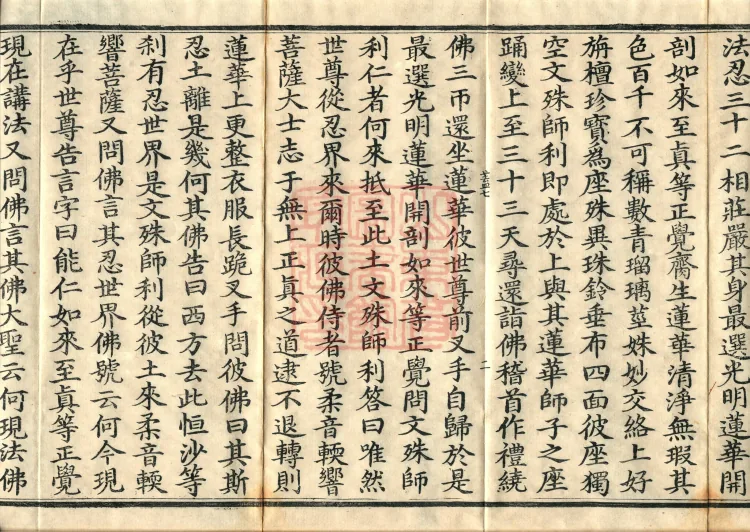 法忍三十二相莊嚴其身最選光明蓮華開
剖如來至真等正覺齎生蓮華清淨無瑕其
色百千不可稱數青瑠璃莖姝妙交絡上好
旃檀珍寶為座殊異珠鈴垂布四面彼座獨
空文殊師利即處於上與其蓮華師子之座
踊變上至三十三天尋還詣佛稽首作禮繞
佛三帀還坐蓮華彼世尊前叉手自歸於是
最選光明蓮華開剖如來等正覺問文殊師
利仁者何來抵至此土文殊師利答曰唯然
世尊從忍界來爾時彼佛侍者號柔音輭響
菩薩大士志于無上正真之道逮不退轉則
蓮華上更整衣服長跪叉手問彼佛曰其斯
忍土離是幾何其佛告曰西方去此恒沙等
剎有忍世界是文殊師利從彼土來柔音輭
響菩薩又問佛言其忍世界佛號云何今現
在乎世尊告言字曰能仁如來至真等正覺
現在講法又問佛言其佛大聖云何現法佛